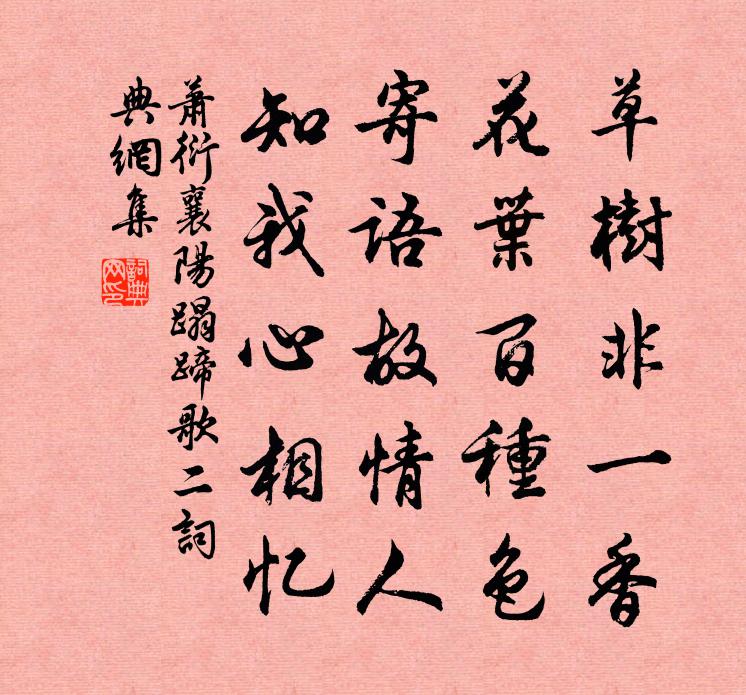 草樹非一香
花葉百種色
寄語故情人
知我心相忆
蕭衍襄陽蹋蹄歌二詞
典網集
詞典网印